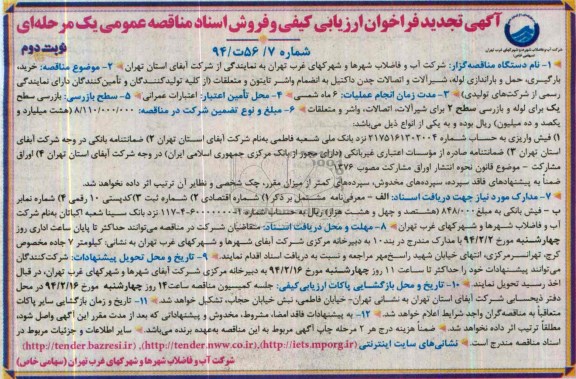 آگهی تجدید فراخوان ارزیابی کیفی و فروش اسناد مناقصه عمومی یک مرحله‌ای
شماره ۷/ ۵۶ت/۹۴
نوبت دوم
شرکت آب و فاضلاب شهرها و شهرکهای غرب تهران
(سهامی خاص)
۱- نام دستگاه مناقصه‌گزار: شرکت آب و فاضلاب شهرها و شهرکهای غرب تهران به نمایندگی از شرکت آبفای استان تهران ۲- موضوع مناقصه: خرید،
بارگیری، حمل و باراندازی لوله، شیرآلات و اتصالات چدن داکتیل به انضمام واشر تایتون و متعلقات (از کلیه تولیدکنندگان و تأمین‌کنندگان دارای نمایندگی
رسمی از شرکت‌های تولیدی) ۳- مدت زمان انجام عملیات: ۶ ماه شمسی ۴- محل تأمین اعتبار: اعتبارات عمرانی ۵- سطح بازرسی: بازرسی سطح
یک برای لوله و بازرسی سطح ۲ برای شیرآلات، اتصالات، واشر و متعلقات ۶- مبلغ و نوع تضمین شرکت در مناقصه: ۸/۱۱۰/۰۰۰/۰۰۰ (هشت میلیارد و
یکصد و ده میلیون) ریال بوده و به یکی از انواع ذیل می‌باشد:
۱) فیش واریزی به حساب شماره ۲۱۷۵۱۶۱۳۰۲۰۰۴ نزد بانک ملی شعبه فاطمی به‌نام شرکت آبفای استان تهران ۲) ضمانتنامه بانکی در وجه شرکت آبفای
استان تهران ۳) ضمانتنامه صادره از مؤسسات اعتباری غیربانکی (دارای مجوز از بانک مرکزی جمهوری اسلامی ایران) در وجه شرکت آبفای استان تهران ۴) اوراق
مشارکت - موضوع قانون نحوه انتشار اوراق مشارکت مصوب ۱۳۷۶
ضمناً به پیشنهادهای فاقد سپرده، سپرده‌های مخدوش، سپرده‌های کمتر از میزان مقرر، چک شخصی و نظایر آن ترتیب اثر داده نخواهد شد.
۷- مدارک مورد نیاز جهت دریافت اسناد: الف - معرفی‌نامه مشتمل بر ذکر ۱) شماره اقتصادی ۲) شماره ثبت ۳) کدپستی ۱۰ رقمی ۴) شماره نمابر
ب - فیش بانکی به مبلغ ۸۴۸/۰۰۰ (هشتصد و چهل و هشت هزار) ریال به حساب شماره نزد بانک سینا شعبه اکباتان به‌نام شرکت
آب و فاضلاب شهرها و شهرکهای غرب تهران ۸- مهلت و محل دریافت اسناد: متقاضیان شرکت در مناقصه می‌توانند حداکثر تا پایان ساعت اداری روز
چهارشنبه مورخ ۹۴/۲/۲ با مدارک مندرج در بند ۱۰ به دبیرخانه مرکزی شرکت آبفای شهرها و شهرکهای غرب تهران به نشانی: کیلومتر ۷ جاده مخصوص
کرج، تهرانسر مرکزی، انتهای خیابان شهید راسخ‌مهر مراجعه و نسبت به دریافت اسناد اقدام نمایند. ۹- تاریخ و محل تحویل پیشنهادات: شرکت‌کنندگان
می‌توانند پیشنهادات خود را حداکثر تا ساعت ۱۱ روز چهارشنبه مورخ ۹۴/۲/۱۶ به دبیرخانه مرکزی شرکت آبفای شهرها و شهرکهای غرب تهران، در قبال
اخذ رسید تحویل نمایند. ۱۰- تاریخ و محل بازگشایی پاکات ارزیابی‌کیفی: جلسه کمیسیون مناقصه ساعت ۱۴ روز چهارشنبه مورخ ۹۴/۲/۱۶ در محل
دفتر ذیحسابی شرکت آبفای استان تهران به نشانی تهران- خیابان فاطمی، نبش خیابان حجاب، تشکیل خواهد شد. ۱۱- تاریخ و زمان بازگشایی سایر پاکات
متعاقباً به مناقصه‌گران واجد شرایط اعلام خواهد شد. ۱۲- به پیشنهادات فاقد امضا، مشروط، مخدوش و پیشنهاداتی که بعد از مدت مقرر این آگهی واصل شود،
مطلقاً ترتیب اثر داده نخواهد شد. ضمناً هزینه درج هر ۲ مرحله چاپ آگهی مربوط به این مناقصه به‌عهده برنده می‌باشد. سایر اطلاعات و جزئیات مربوط در
اسناد مناقصه مندرج است. نشانی‌های سایت اینترنتی (http://iets.mporg.ir)، (http://tender.nww.co.ir)، (http://tender.bazresi.ir)
شرکت آب و فاضلاب شهرها و شهرکهای غرب تهران (سهامی خاص)